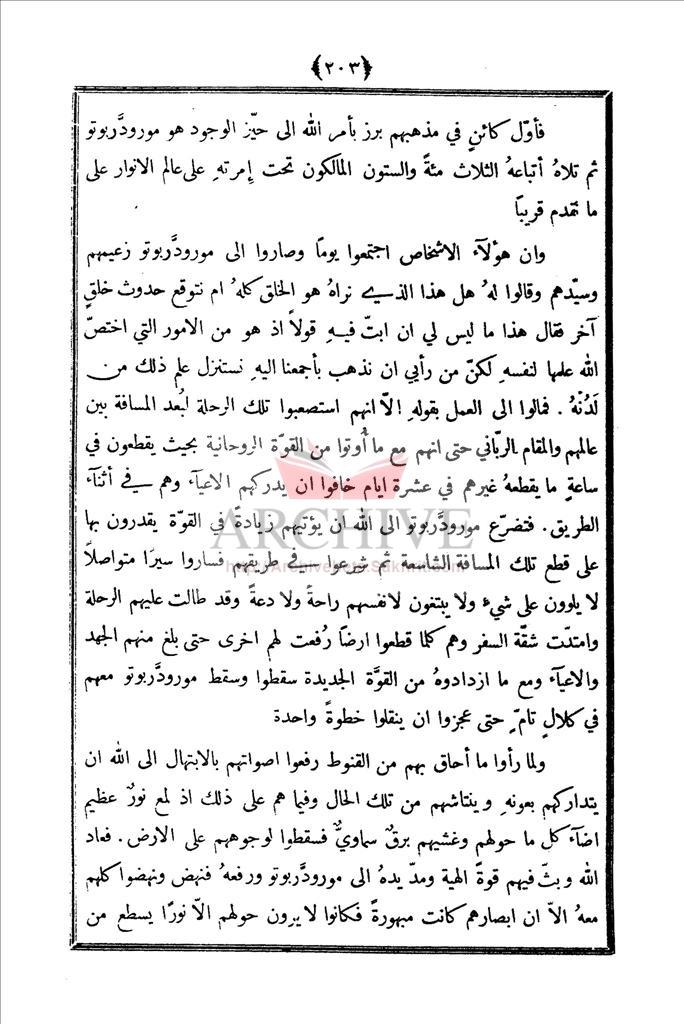 ﴿٢٠٣﴾
فأوّل كائنٍ في مذهبهم برز بأمر الله الى حيّز الوجود هو مورودَّربوتو
ثم تلاهُ أتباعهُ الثلاث مئةً والستون المالكون تحت إمرتهِ على عالم الانوار على
ما تقدم قريبًا
وان هؤلآء الاشخاص اجتمعوا يومًا وصاروا الى مورودَّربوتو زعيمهم
وسيّدهم وقالوا لهُ هل هذا الذي نراهُ هو الخلق كلهُ ام نتوقع حدوث خلقٍ
آخر فقال هذا ما ليس لي ان ابتّ فيهِ قولاً اذ هو من الامور التي اختصّ
الله علمها لنفسهِ لكنّ من رأيي ان نذهب بأجمعنا اليهِ نستنزل علم ذلك من
لَدُنْهُ . فمالوا الى العمل بقولهِ الاّ انهم استصعبوا تلك الرحلة لبُعد المسافة بين
عالمهم والمقام الربّاني حتى انهم مع ما أُوتوا من القوّة الروحانية بحيث يقطعون في
ساعةٍ ما يقطعهُ غيرهم في عشرة ايام خافوا ان يدركهم الاعيآء وهم في أثنآء
الطريق . فتضرّع مورودَّربوتو الى الله ان يؤتيهم زيادةً في القوّة يقدرون بها
على قطع تلك المسافة الشاسعة ثم شرعوا في طريقهم فساروا سيرًا متواصلاً
لا يلوون على شيءٍ ولا يبتغون لانفسهم راحةً ولا دعةً وقد طالت عليهم الرحلة
وامتدّت شقّة السفر وهم كلما قطعوا ارضًا رُفعت لهم اخرى حتى بلغ منهم الجهد
والاعيآء ومع ما ازدادوهُ من القوَّة الجديدة سقطوا وسقط مورودَّربوتو معهم
في كلالٍ تامّ ٍ حتى عجزوا ان ينقلوا خطوةً واحدة
ولما رأوا ما أحاق بهم من القنوط رفعوا اصواتهم بالابتهال الى الله ان
يتداركهم بعونهِ وينتاشهم من تلك الحال وفيما هم على ذلك اذ لمع نورٌ عظيم
اضآء كل ما حولهم وغشيهم برقٌ سماويٌّ فسقطوا لوجوههم على الارض . فعاد
الله وبثّ فيهم قوةً الهية ومدّ يدهُ الى مورودَّربوتو ورفعهُ فنهض ونهضوا كلهم
معهُ الاّ ان ابصارهم كانت مبهورةً فكانوا لا يرون حولهم الاّ نورًا يسطع من
ARCHIVE